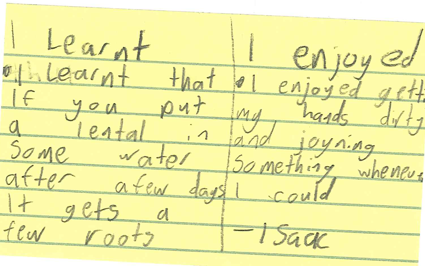 I Learnt
• I Learnt that
If you put
a lental in
Some water
after afew days
It gets a
few roots
I enjoyed
• I enjoyed gett
my hands dirty
and joyning
Something wheneve
I could
- Isaac